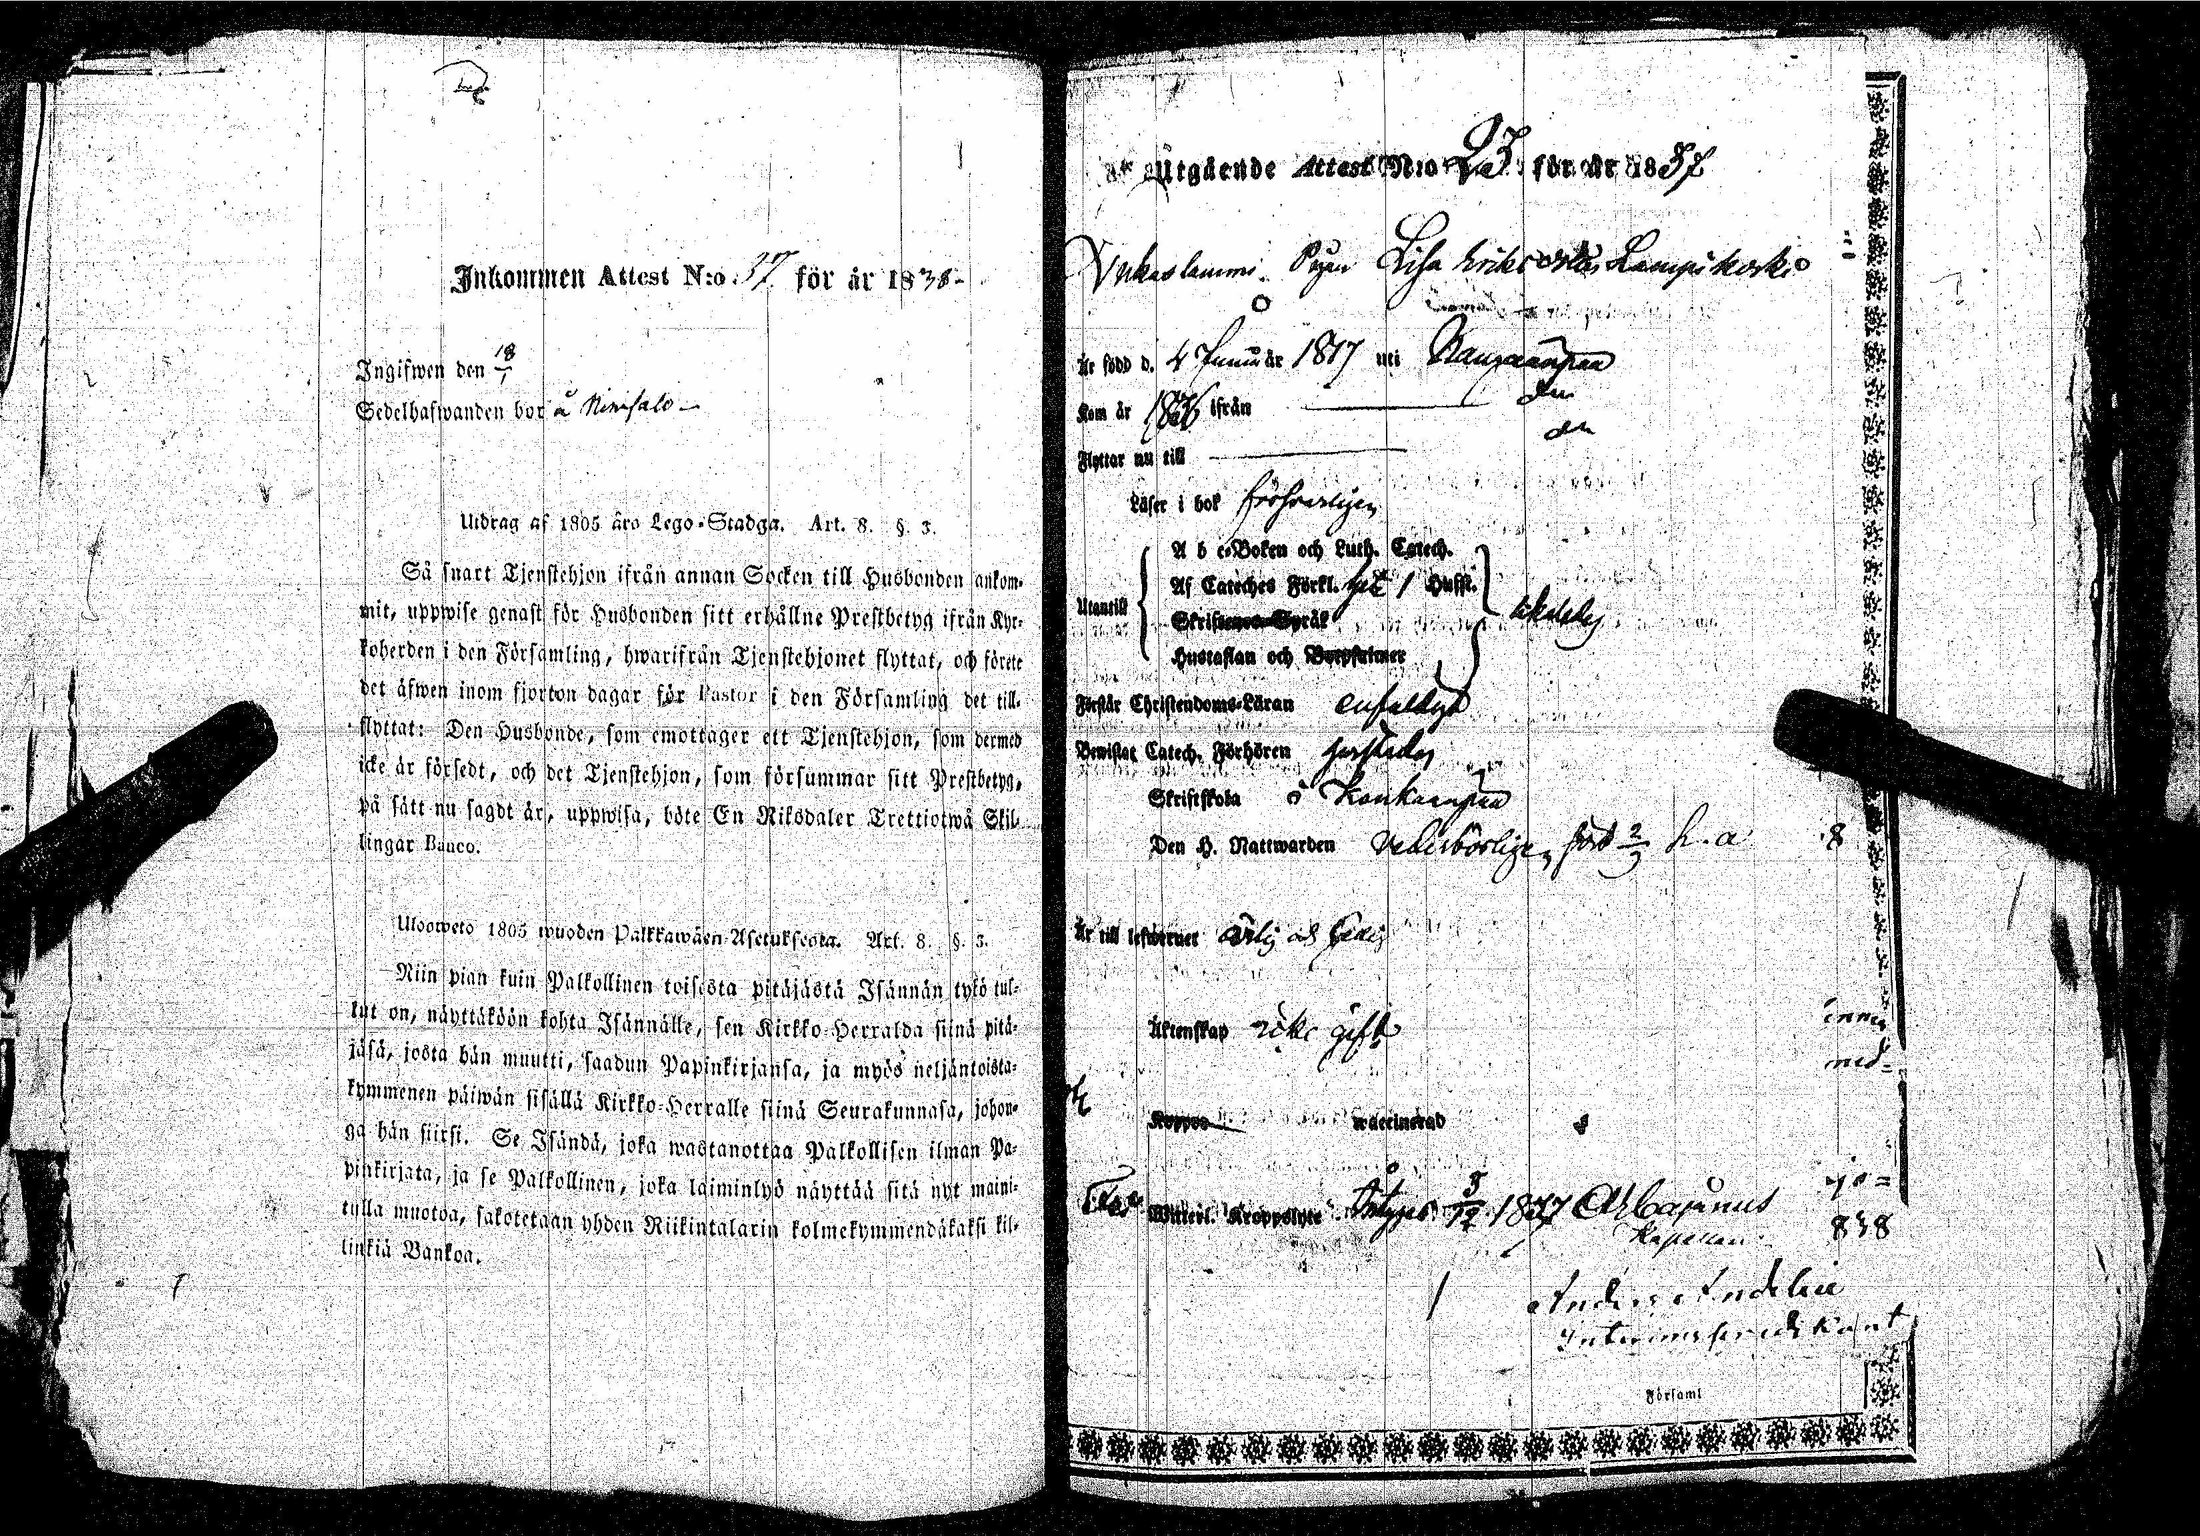 Inkommen Attest N:o 37 för år 1838-
Ingifwen den 18/1
Sedelhafwanden bor å Niinsalo -
Utdrag af 1805 års Lego-Stadga. Art. 8. §. 3.
Så snart Tjenstehjon ifrån annan Socken till Husbonden ankom-
mit, uppwise genast för Husbonden sitt erhållne Prestbetyg ifrån Kyr-
koherden i den Församling, hwarifrån Tjenstehjonet flyttat, och förete
det äfwen inom fjorton dagar för Pastor i den Församling det till-
flyttat: Den Husbonde, som emottager ett Tjenstehjon, som dermed
icke är försedt, och det Tjenstehjon, som försummar sitt Prestbetyg,
på sätt nu sagdt är, uppwisa, böte En Riksdaler Trettiotwå Skil-
lingar Banco.
Ulosweto 1805 wuoden Palkkawäen-Asetuksesta. Art. 8. §. 3.
Niin pian kuin Palkollinen toisesta pitäjästä Isännän tykö tul-
lut on, näyttäköön kohta Isännälle, sen Kirkko-Herralda siinä pitä-
jäsä, josta hän muutti, saadun Papinkirjansa, ja myös neljäntoista-
kymmenen päiwän sisällä Kirkko-Herralle siinä Seurakunnasa, johon-
ga hän siirsi. Se Isändä, joka wastanottaa Palkollisen ilman Pa-
pinkirjata, ja se Palkollinen, joka laiminlyö näyttää sitä nyt maini-
tulla muotoa, sakotetaan yhden Riikintalarin kolmekymmendäkaksi kil-
linkiä Bankoa.
Utgående Attest N:o 23 för år 1837
Pigan Lisa Eriksdotter Lampikoski
Är född d. 4 Januär 1817 uti Kangaanpää
Kom år ifrån
Flyttar nu till
Läser i bok försvarligen
A b c-Boken och Luth. Catech.
Af Cateches Förkl. 1 Hufst.
Utantill likaledes
Skriftenes Språk
Hustaflan och Botpsalmer
Förstår Christendoms-Läran enfaldigt
Bewistat Catech. Förhören
Skriftskola Kankaanpää
Den H. Nattwarden vederbörligen, sist 2/3 h. a 8
Är till lefwernet ärlig och sedig
Äktenskap icke gift
Koppor waccinerad
Witterl. Kroppslyte 3/12 1837 Cajanus
Kapellan
838
Anders Andelin
Interimspredikant
Församl